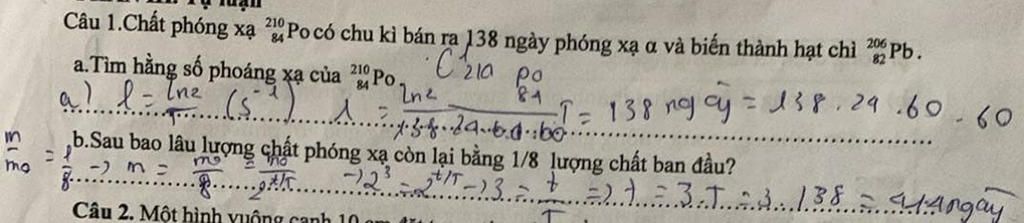 Câu 1.Chất phóng xạ ²¹⁰₈₄Po có chu kì bán ra 138 ngày phóng xạ α và biến thành hạt chì ²⁰⁶₈₂Pb.
a.Tìm hằng số phoáng xạ của ²¹⁰₈₄Po.
a) l = ln2/T (s⁻¹) λ = ln2/138.24.60.60 T = 138 ngày = 138.24.60.60
b.Sau bao lâu lượng chất phóng xạ còn lại bằng 1/8 lượng chất ban đầu?
m/m₀ = 1/8 -> m = m₀/8 = m₀/2^(t/T) -> 2³ = 2^(t/T) -> 3 = t/T => t = 3.T = 3.138 = 414 ngày
Câu 2. Một hình vuông cạnh 10